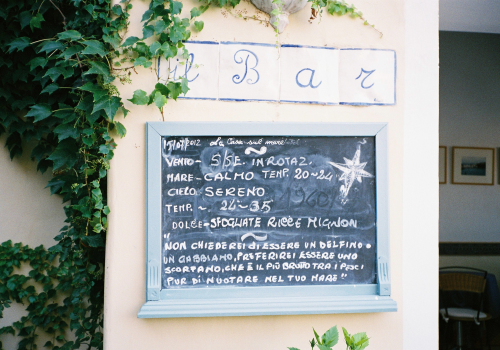 il Bar
15/07/2012 La Casa sul mare
VENTO - S/SE. IN ROTAZ.
MARE - CALMO TEMP. 20~24
CIELO SERENO
TEMP. ~ 24~35
DOLCE - SFOGLIATE RICCE MIGNON
"NON CHIEDEREI di ESSERE UN DELFINO o
UN GABBIANO, PREFERIREI ESSERE UNO
SCORFANO, CHE È IL PIÙ BRUTTO TRA I PESCI
PUR DI NUOTARE NEL TUO MARE"